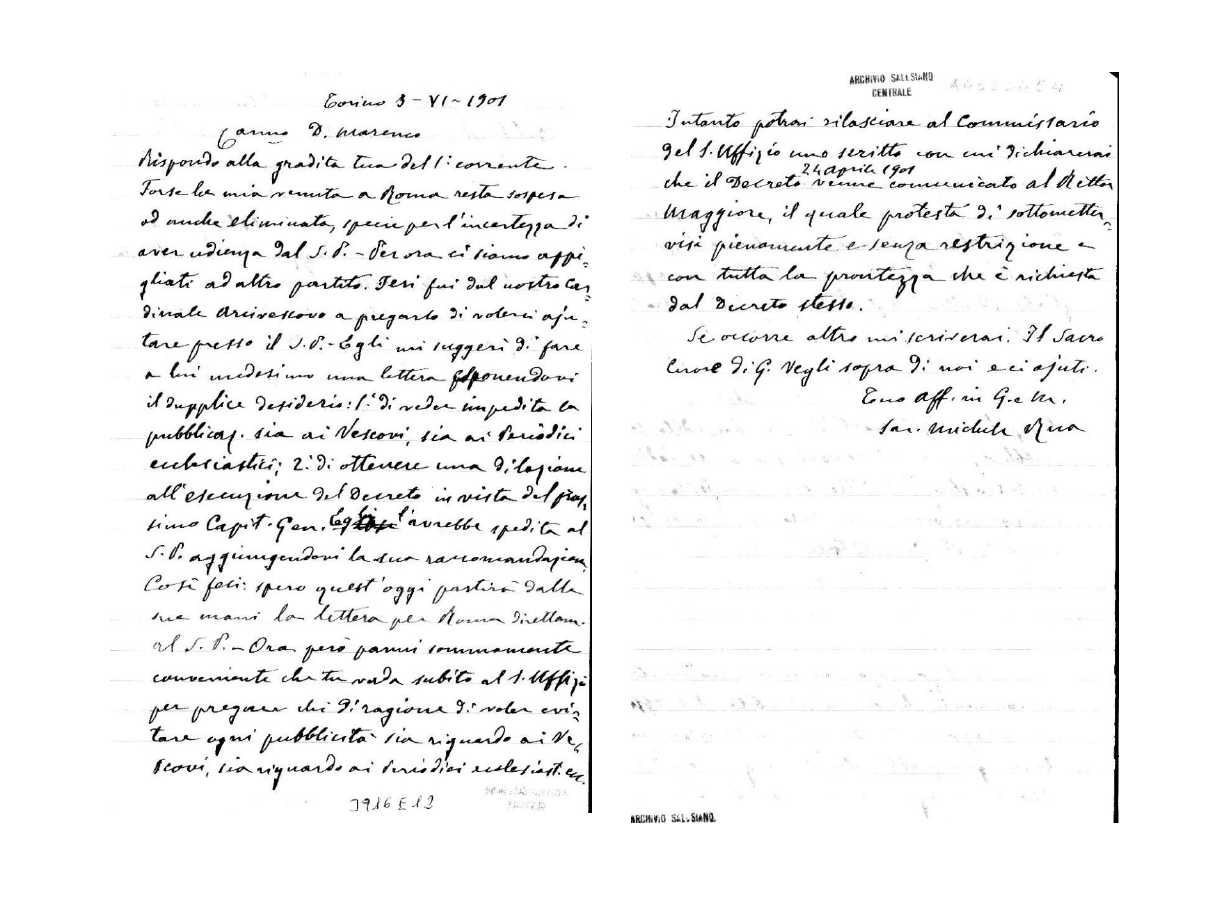 Torino 3 - VI - 1901
Carmo D. Marenco
Rispondo alla gradita tua del 1° corrente.
Forse la mia venuta a Roma resta sospesa
ed anche eliminata, specie per l'incertezza di
aver udienza dal S. P. - Per ora ci siamo appi=
gliati ad altro partito. Ieri fui dal nostro Car=
dinale Arcivescovo a pregarlo di volerci aju=
tare presso il S. P. - Egli mi suggerì di fare
a lui medesimo una lettera esponendovi
il duplice desiderio: 1.° di veder impedita la
pubblicaz. sia ai Vescovi, sia ai Periodici
ecclesiastici; 2.° di ottenere una dilazione
all'esecuzione del Decreto in vista del pros=
simo Capit. Gen. Egli l'avrebbe spedita al
S. P. aggiungendovi la sua raccomandazione
Così feci: spero quest'oggi partirà dalle
sue mani la lettera per Roma direttam.
al S. P. - Ora però parmi sommamente
conveniente che tu vada subito al S. Uffizio
per pregare chi di ragione di voler evi=
tare ogni pubblicità sia riguardo ai Ve=
scovi, sia riguardo ai Periodici ecclesiast. ecc.
J916 E12
ARCHIVIO SALESIANO
CENTRALE
Intanto potrai rilasciare al Commissario
del S. Uffizio uno scritto con cui dichiarerai
24 aprile 1901
che il Decreto venne comunicato al Rettor
Maggiore, il quale protesta di sottometter=
visi pienamente e senza restrizione e
con tutta la prontezza che è richiesta
dal Decreto stesso.
Se occorre altro mi scriverai. Il Sacro
Cuore di G. Vegli sopra di noi e ci ajuti.
Tuo Aff. in G. e M.
Sac. Michele Rua
ARCHIVIO SALESIANO